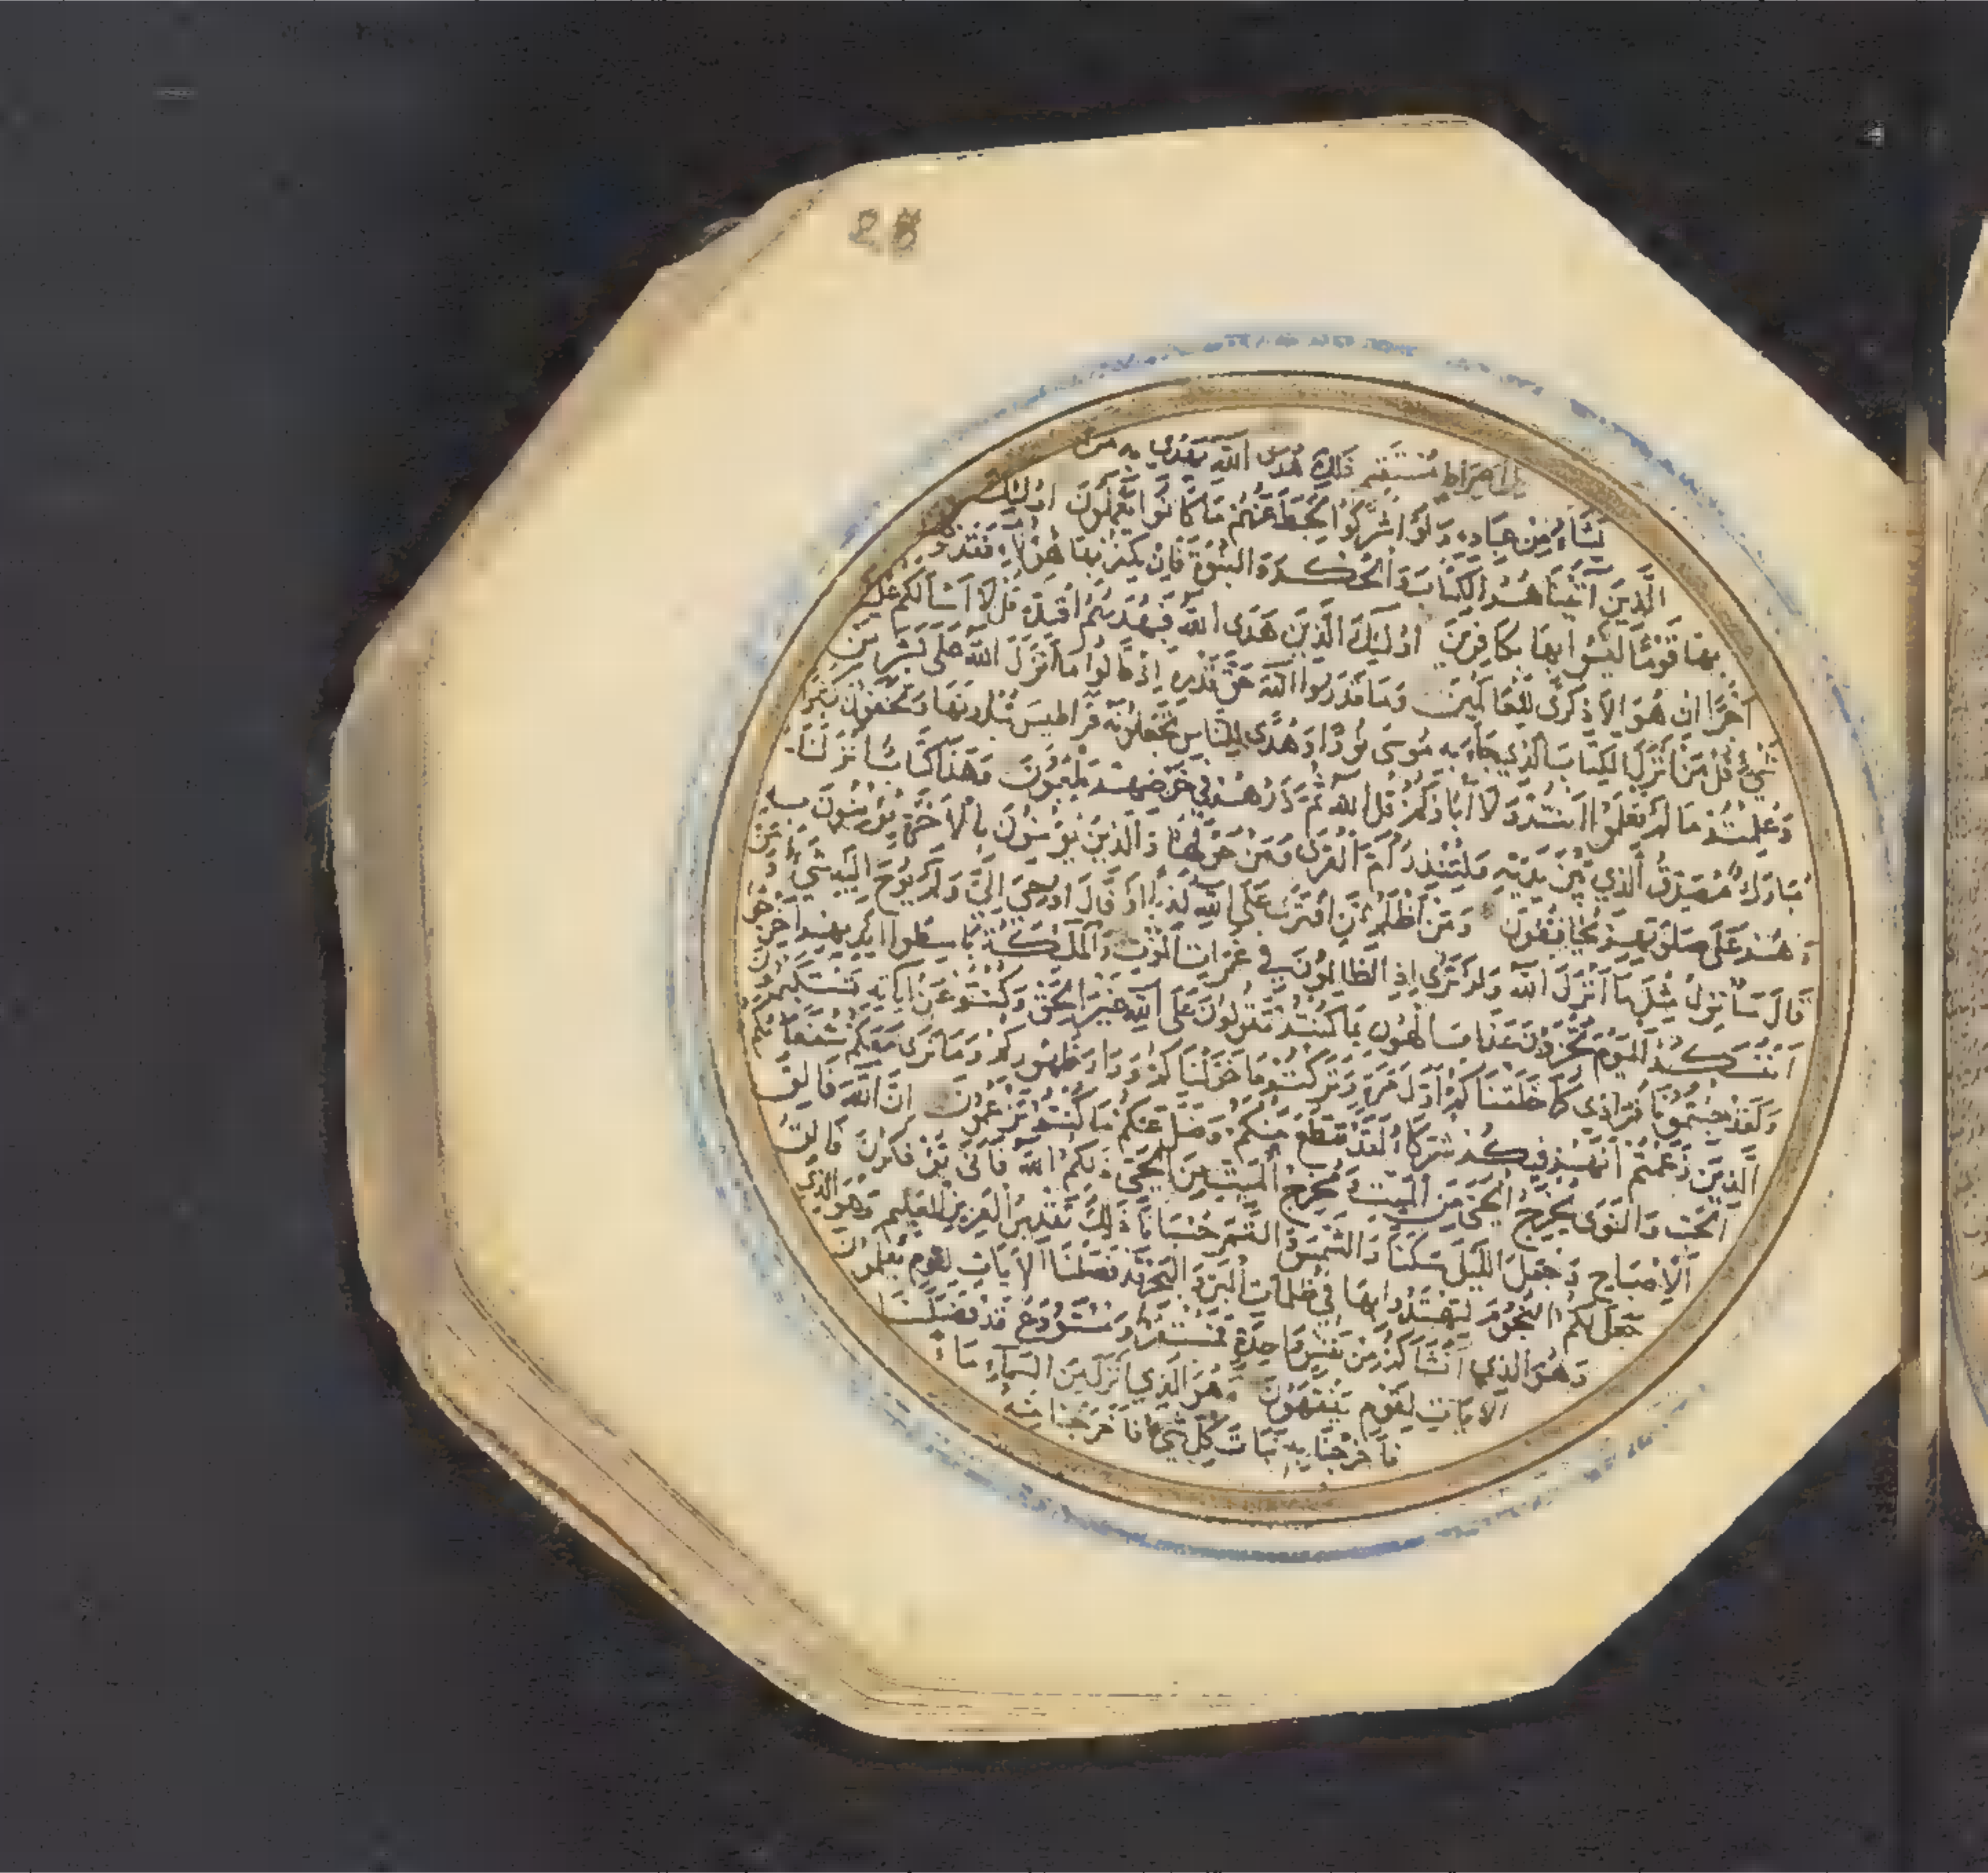 28
الى صراط مستقيم ذلك هدى الله يهدي به من
يشاء من عباده ولو اشركوا لحبط عنهم ما كانوا يعملون اولئك
الذين اتيناهم الكتاب والحكمة والنبوة فان يكفر بها هؤلاء فقد وكلنا
بها قوما ليسوا بها بكافرين اولئك الذين هدى الله فبهديهم اقتده قل لا اسالكم عليه
اجرا ان هو الا ذكرى للعالمين وما قدروا الله حق قدره اذ قالوا ما انزل الله على بشر من
شيء قل من انزل الكتاب الذي جاء به موسى نورا وهدى للناس تجعلونه قراطيس تبدونها وتخفون كثيرا
وعلمتم ما لم تعلموا انتم ولا اباؤكم قل الله ثم ذرهم في خوضهم يلعبون وهذا كتاب انزلناه
مبارك مصدق الذي بين يديه ولتنذر ام القرى ومن حولها والذين يؤمنون بالاخرة يؤمنون به
وهم على صلوتهم يحافظون ومن اظلم ممن افترى على الله كذبا او قال اوحي الي ولم يوح اليه شيء ومن
قال سانزل مثل ما انزل الله ولو ترى اذ الظالمون في غمرات الموت والملئكة باسطوا ايديهم اخرجوا
انفسكم اليوم تجزون عذاب الهون بما كنتم تقولون على الله غير الحق وكنتم عن اياته تستكبرون
ولقد جئتمونا فرادى كما خلقناكم اول مرة وتركتم ما خولناكم وراء ظهوركم وما نرى معكم شفعاءكم
الذين زعمتم انهم فيكم شركاء لقد تقطع بينكم وضل عنكم ما كنتم تزعمون ان الله فالق
الحب والنوى يخرج الحي من الميت ومخرج الميت من الحي ذلكم الله فانى تؤفكون فالق
الاصباح وجعل الليل سكنا والشمس والقمر حسبانا ذلك تقدير العزيز العليم وهو الذي
جعل لكم النجوم لتهتدوا بها في ظلمات البر والبحر قد فصلنا الايات لقوم يعلمون
وهو الذي انشاكم من نفس واحدة فمستقر ومستودع قد فصلنا
الايات لقوم يفقهون وهو الذي انزل من السماء ماء
فاخرجنا به نبات كل شيء فاخرجنا منه